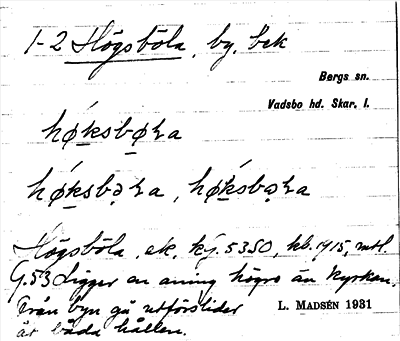 1-2 Högsböla, by, bek
Bergs sn.
Vadsbo hd. Skar. l.
hǿksbøla
hǿksbəla, hǿksbəla
Högsböla, ek, kj. 5350, kb. 1715, mtl.
G.53 Ligger en aning högre än kyrkan.
Från byn gå utförslider
åt båda hållen.
L. MADSÉN 1931